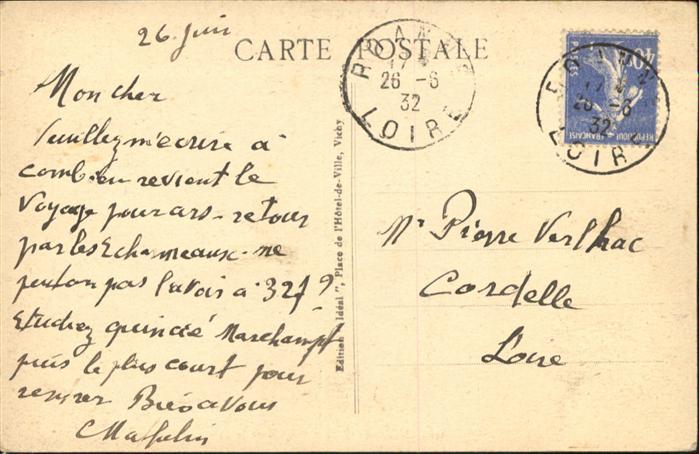 26 Juin
CARTE POSTALE
Mon cher
Veuillez m'écrire à
combien revient le
voyage pour ars - retour
par les Echarmeaux - ne
peut on pas l'avoir à 32f ?
Etudiez Marchampt
puis le plus court pour
Bien à vous
Edition " Idéal ", Place de l'Hôtel-de-Ville, Vichy
ROANNE
17
26 - 6
32
LOIRE
40c
REPUBLIQUE FRANÇAISE
ROANNE
17
26 - 6
32
LOIRE
Mr Pierre Verlhac
Cordelle
Loire